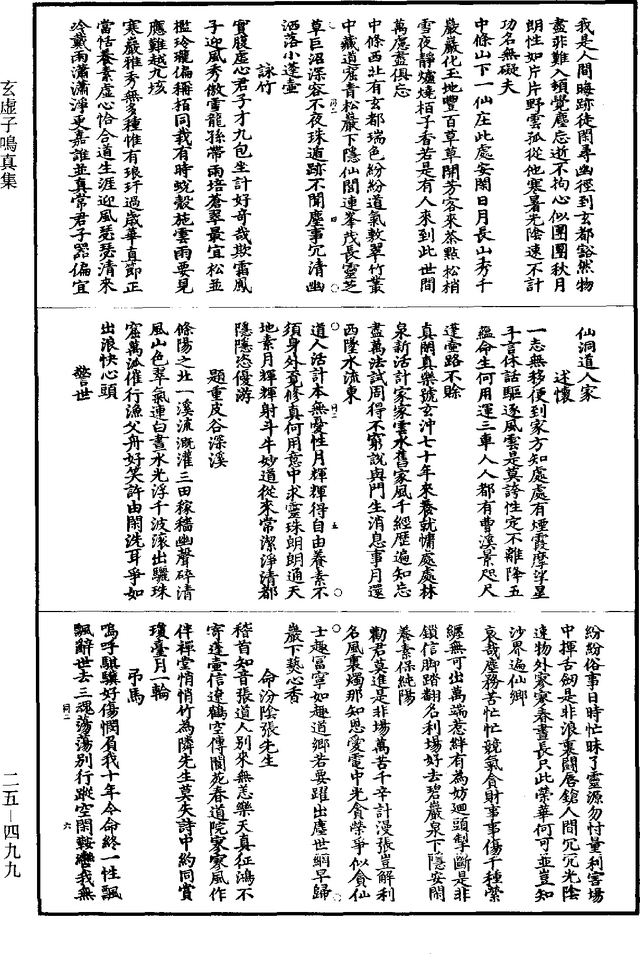 玄虛子鳴真集
我是人間晦跡徒閑尋幽徑到玄都豁然物
盡非難入頓覺塵忘逝不拘心似團團秋月
朗性如片片野雲孤從他寒暑光陰速不計
功名無礙夫
中條山下一仙庄此處安閑日月長山秀千
巖巖化玉地豐百草草開芳客來茶點松梢
雪夜靜爐燒栢子香若是有人來到此世間
萬慮盡俱忘
中條西壯有玄都瑞色紛紛道氣敷翠竹叢
中藏道窟青松巖下隱仙閭連峯茂長靈芝
草巨沼深容不夜珠遁跡不聞塵事冗清幽
洒落小蓬壷
詠竹
實腹虛心君子才九包坐計好奇哉欺霜鳳
子迎風秀傲雪龍孫帶雨培蒼翠最宜松並
檻玲瓏偏稱栢同栽有時蛻殼施雲雨要見
應難越九垓
寒巖雅秀無多種惟有琅玕過歲華直節正
當恬養素虛心恰合道生涯迎風瑟瑟清來
冷戴雨瀟瀟淨更嘉誰並真常君子器偏宜
仙洞道人家
述懷
一志無移便到家方知處處有煙霞摩挲星
斗言休話驅逐風雲是莫誇性定不離降五
蘊命生何用運三車人人都有曹溪景咫尺
蓬壷路不賒
真閑真樂號玄沖七十年來養就慵處處林
泉新活計家家雲水舊家風千經歷遍知忘
盡萬法試周得不窮說與門生消息事月還
西墜水流東
道人活計本無憂性月輝輝得自由養素不
須身外覔修真何用意中求靈珠朗朗通天
地素月輝輝射斗牛妙道從來常潔淨清都
隱隱恣優游
題重皮谷深溪
條陽之北一溪流漑灌三田稼穡幽聲碎清
風山色翠氣連白晝水光浮千波滚出驪珠
窟萬派催行漁父舟好笑許由閑洗耳爭如
出浪快心頭
警世
紛紛俗事日時忙昧了靈源勿忖量利害場
中揮舌劒是非浪裏鬪唇鎗人間冗冗光陰
速物外寥寥春晝長只此榮華何可並豈知
沙界遍仙鄉
哀哉塵務苦忙忙競氣貪財事事傷千種縈
纏無可出萬端惹絆有為妨廻頭掣斷是非
鎖信脚踏翻名利場好去碧巖泉下隱安閑
養素保純陽
勸君莫進是非場萬苦千辛計漫張豈解利
名風裏燭那知恩愛電中光貪榮爭似貪仙
士趣富寧如趣道鄉若要躍出塵世網早歸
巖下爇心香
命汾陰張先生
稽首知音張道人別來無恙樂天真征鴻不
寄蓬壷信遼鶴空傳閬苑春道院寥寥風作
伴禪堂悄悄竹為隣先生莫失詩中約同賞
瓊臺月一輪
弔馬
嗚呼騏驥好傷憫負我十年今命終一性飄
飄辭世去三魂蕩蕩別行蹤空閑鞍轡我無
二五—四九九